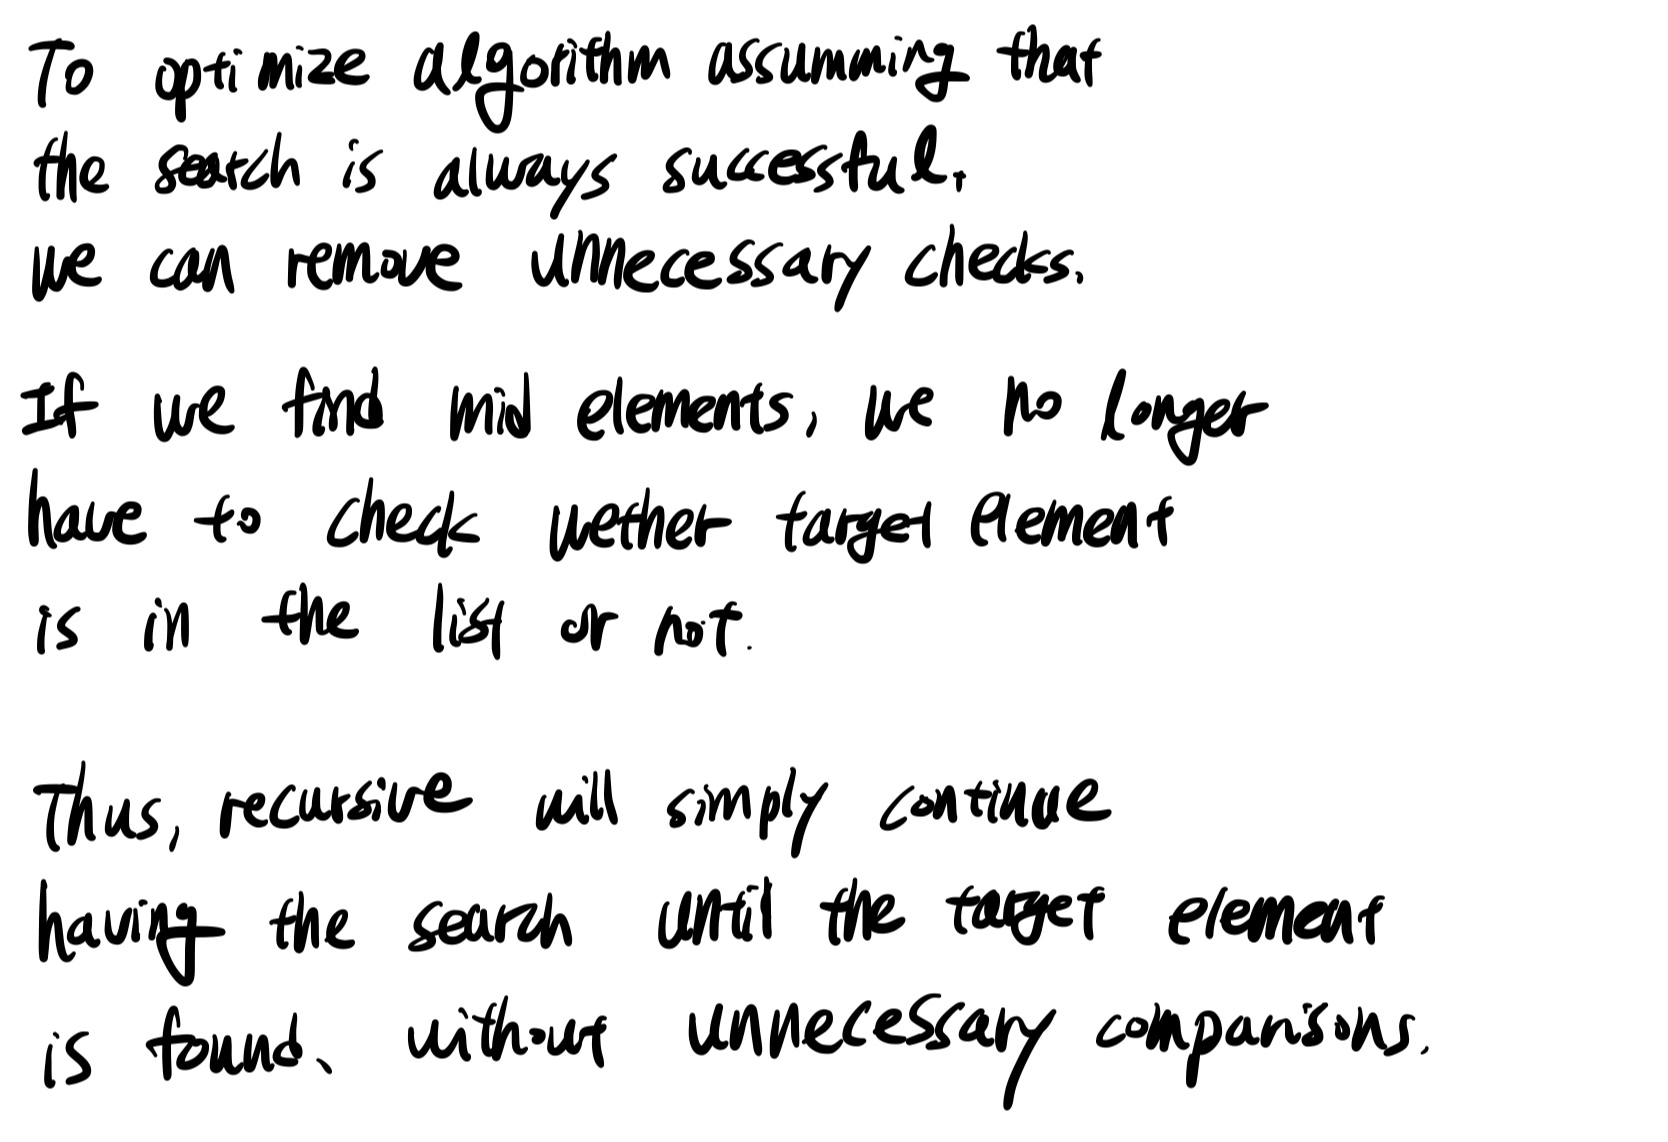 To optimize algorithm assumming that
the search is always successful,
we can remove unnecessary checks.
If we find mid elements, we no longer
have to check wether target element
is in the list or not.
Thus, recursive will simply continue
having the search until the target element
is found, without unnecessary comparisons.